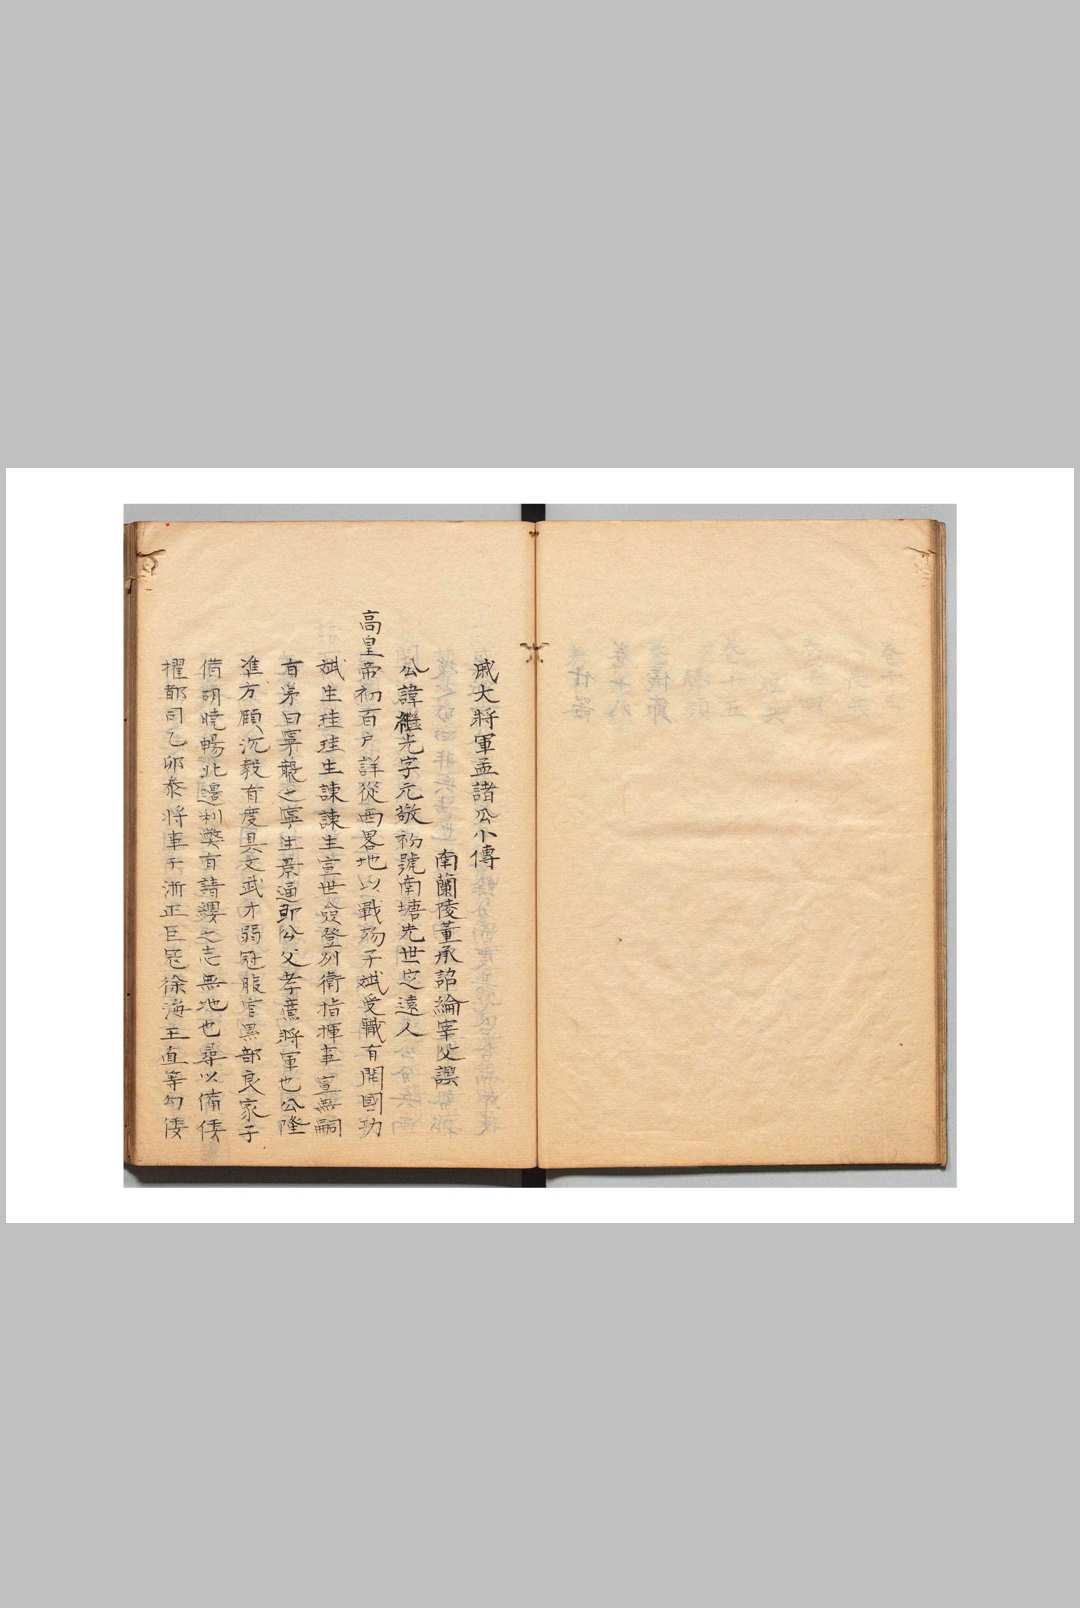 戚大將軍孟諸公小傳
南蘭陵董承詔綸宰父譔
公諱繼光字元敬初號南塘先世定遠人
高皇帝初百戶詳從西畧地以戰殁子斌受職有開國功
斌生珪珪生諫諫生宣世登列衛指揮事宣無嗣
有弟曰寧襲之寧生景通即公父孝廉將軍也公隆
準方頤沉毅有度具文武才弱冠服官黑部良家子
備胡曉暢北邊利獘有請纓之志無地也尋以備倭
擢都司乙卯叅將軍于浙正巨寇徐海王直等勾倭